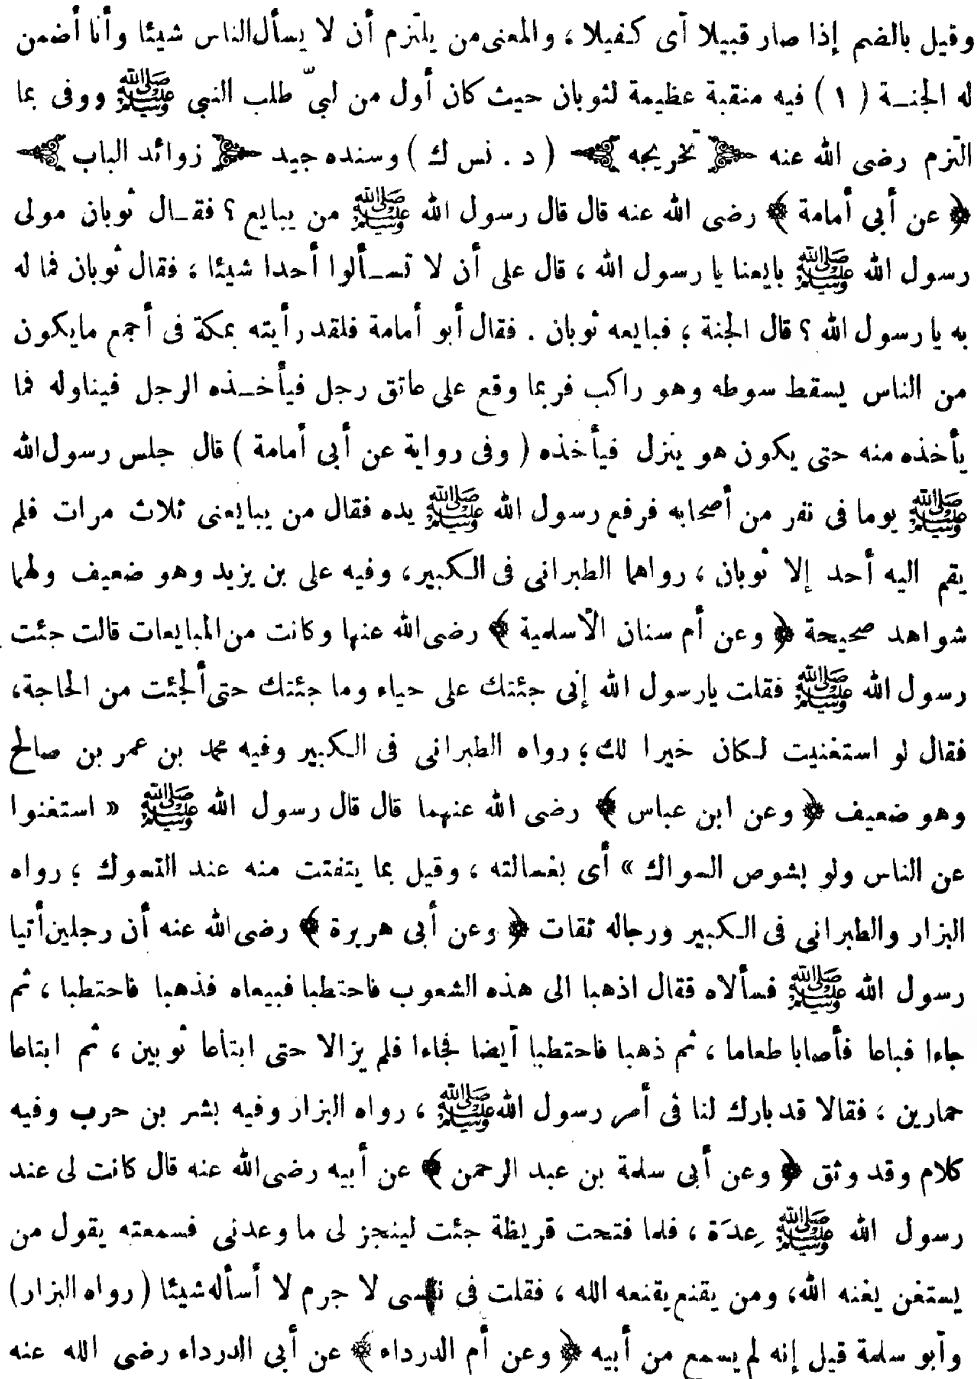 وقيل بالضم إذا صار قبيلا أى كفيلا ، والمعنى من يلتزم أن لا يسأل الناس شيئا وأنا أضمن
له الجنـة ( ١ ) فيه منقبة عظيمة لثوبان حيث كان أول من لبىّ طلب النبى ﷺ ووفى بما
التزم رضى الله عنه تخريجه ( د . نس ك ) وسنده جيد زوائد الباب
﴿ عن أبى أمامة ﴾ رضى الله عنه قال قال رسول الله ﷺ من يبايع ؟ فقـال ثوبان مولى
رسول الله ﷺ بايعنا يا رسول الله ، قال على أن لا تسـألوا أحدا شيئا ، فقال ثوبان فما له
به يا رسول الله ؟ قال الجنة ؛ فبايعه ثوبان . فقال أبو أمامة فلقد رأيته بمكة فى أجمع مايكون
من الناس يسقط سوطه وهو راكب فربما وقع على عاتق رجل فيأخـذه الرجل فيناوله فما
يأخذه منه حتى يكون هو ينزل فيأخذه ( وفى رواية عن أبى أمامة ) قال جلس رسول الله
ﷺ يوما فى نفر من أصحابه فرفع رسول الله ﷺ يده فقال من يبايعنى ثلاث مرات فلم
يقم اليه أحد إلا ثوبان ، رواهما الطبرانى فى الكبير، وفيه على بن يزيد وهو ضعيف ولهما
شواهد صحيحة ﴿ وعن أم سنان الأسلمية ﴾ رضى الله عنها وكانت من المبايعات قالت جئت
رسول الله ﷺ فقلت يارسول الله إنى جئتك على حياء وما جئتك حتى ألجئت من الحاجة،
فقال لو استغنيت لكان خيرا لك؛ رواه الطبرانى فى الكبير وفيه محمد بن عمر بن صالح
وهو ضعيف ﴿ وعن ابن عباس ﴾ رضى الله عنهما قال قال رسول الله ﷺ « استغنوا
عن الناس ولو بشوص السواك » أى بغسالته ، وقيل بما يتفتت منه عند التسوك ؛ رواه
البزار والطبرانى فى الكبير ورجاله ثقات ﴿ وعن أبى هريرة ﴾ رضى الله عنه أن رجلين أتيا
رسول الله ﷺ فسألاه فقال اذهبا الى هذه الشعوب فاحتطبا فبيعاه فذهبا فاحتطبا ، ثم
جاءا فباعا فأصابا طعاما ، ثم ذهبا فاحتطبا أيضا فجاءا فلم يزالا حتى ابتاعا ثوبين ، ثم ابتاعا
حمارين ، فقالا قد بارك لنا فى أمر رسول الله ﷺ ، رواه البزار وفيه بشر بن حرب وفيه
كلام وقد وثق ﴿ وعن أبى سلمة بن عبد الرحمن ﴾ عن أبيه رضى الله عنه قال كانت لى عند
رسول الله ﷺ عِدَة ، فلما فتحت قريظة جئت لينجز لى ما وعدنى فسمعته يقول من
يستغن يغنه الله، ومن يقنع يقنعه الله ، فقلت فى نفسى لا جرم لا أسأله شيئا (رواه البزار)
وأبو سلمة قيل إنه لم يسمع من أبيه ﴿ وعن أم الدرداء ﴾ عن أبى الدرداء رضى الله عنه